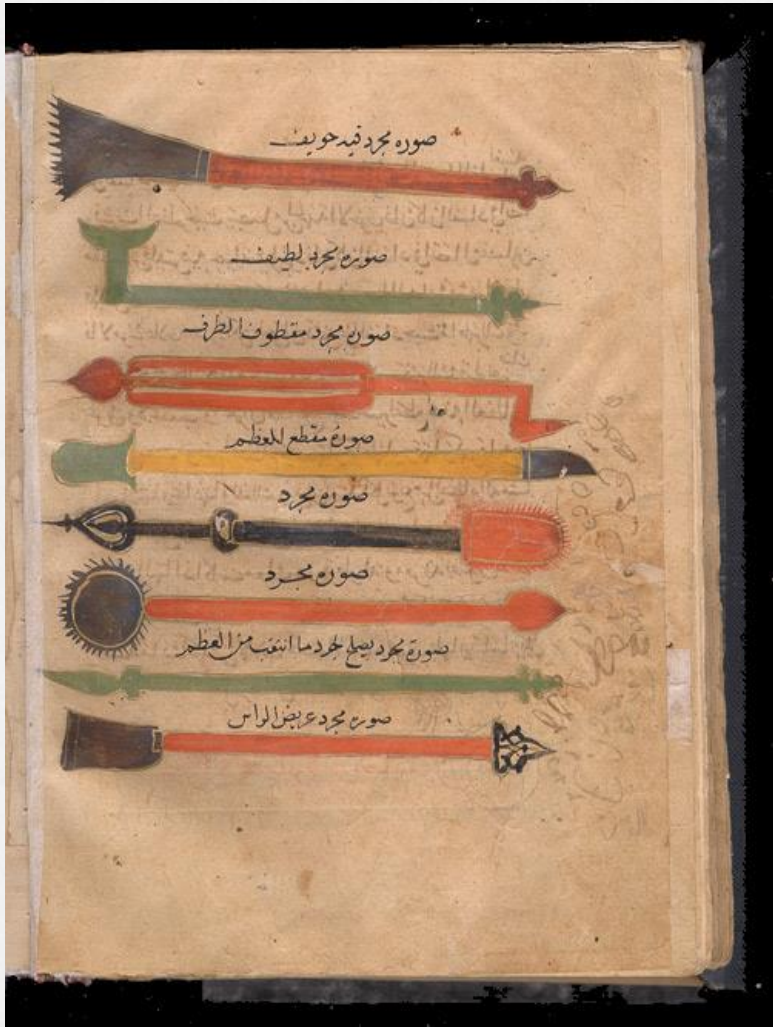 صورة مجرد فيه تجويف
صورة مجرد لطيف
صورة مجرد مقطوف الطرف
صورة مقطع للعظم
صورة مجرد
صورة مجرد
صورة مجرد يصلح لجرد ما انثقب من العظم
صورة مجرد عريض الراس